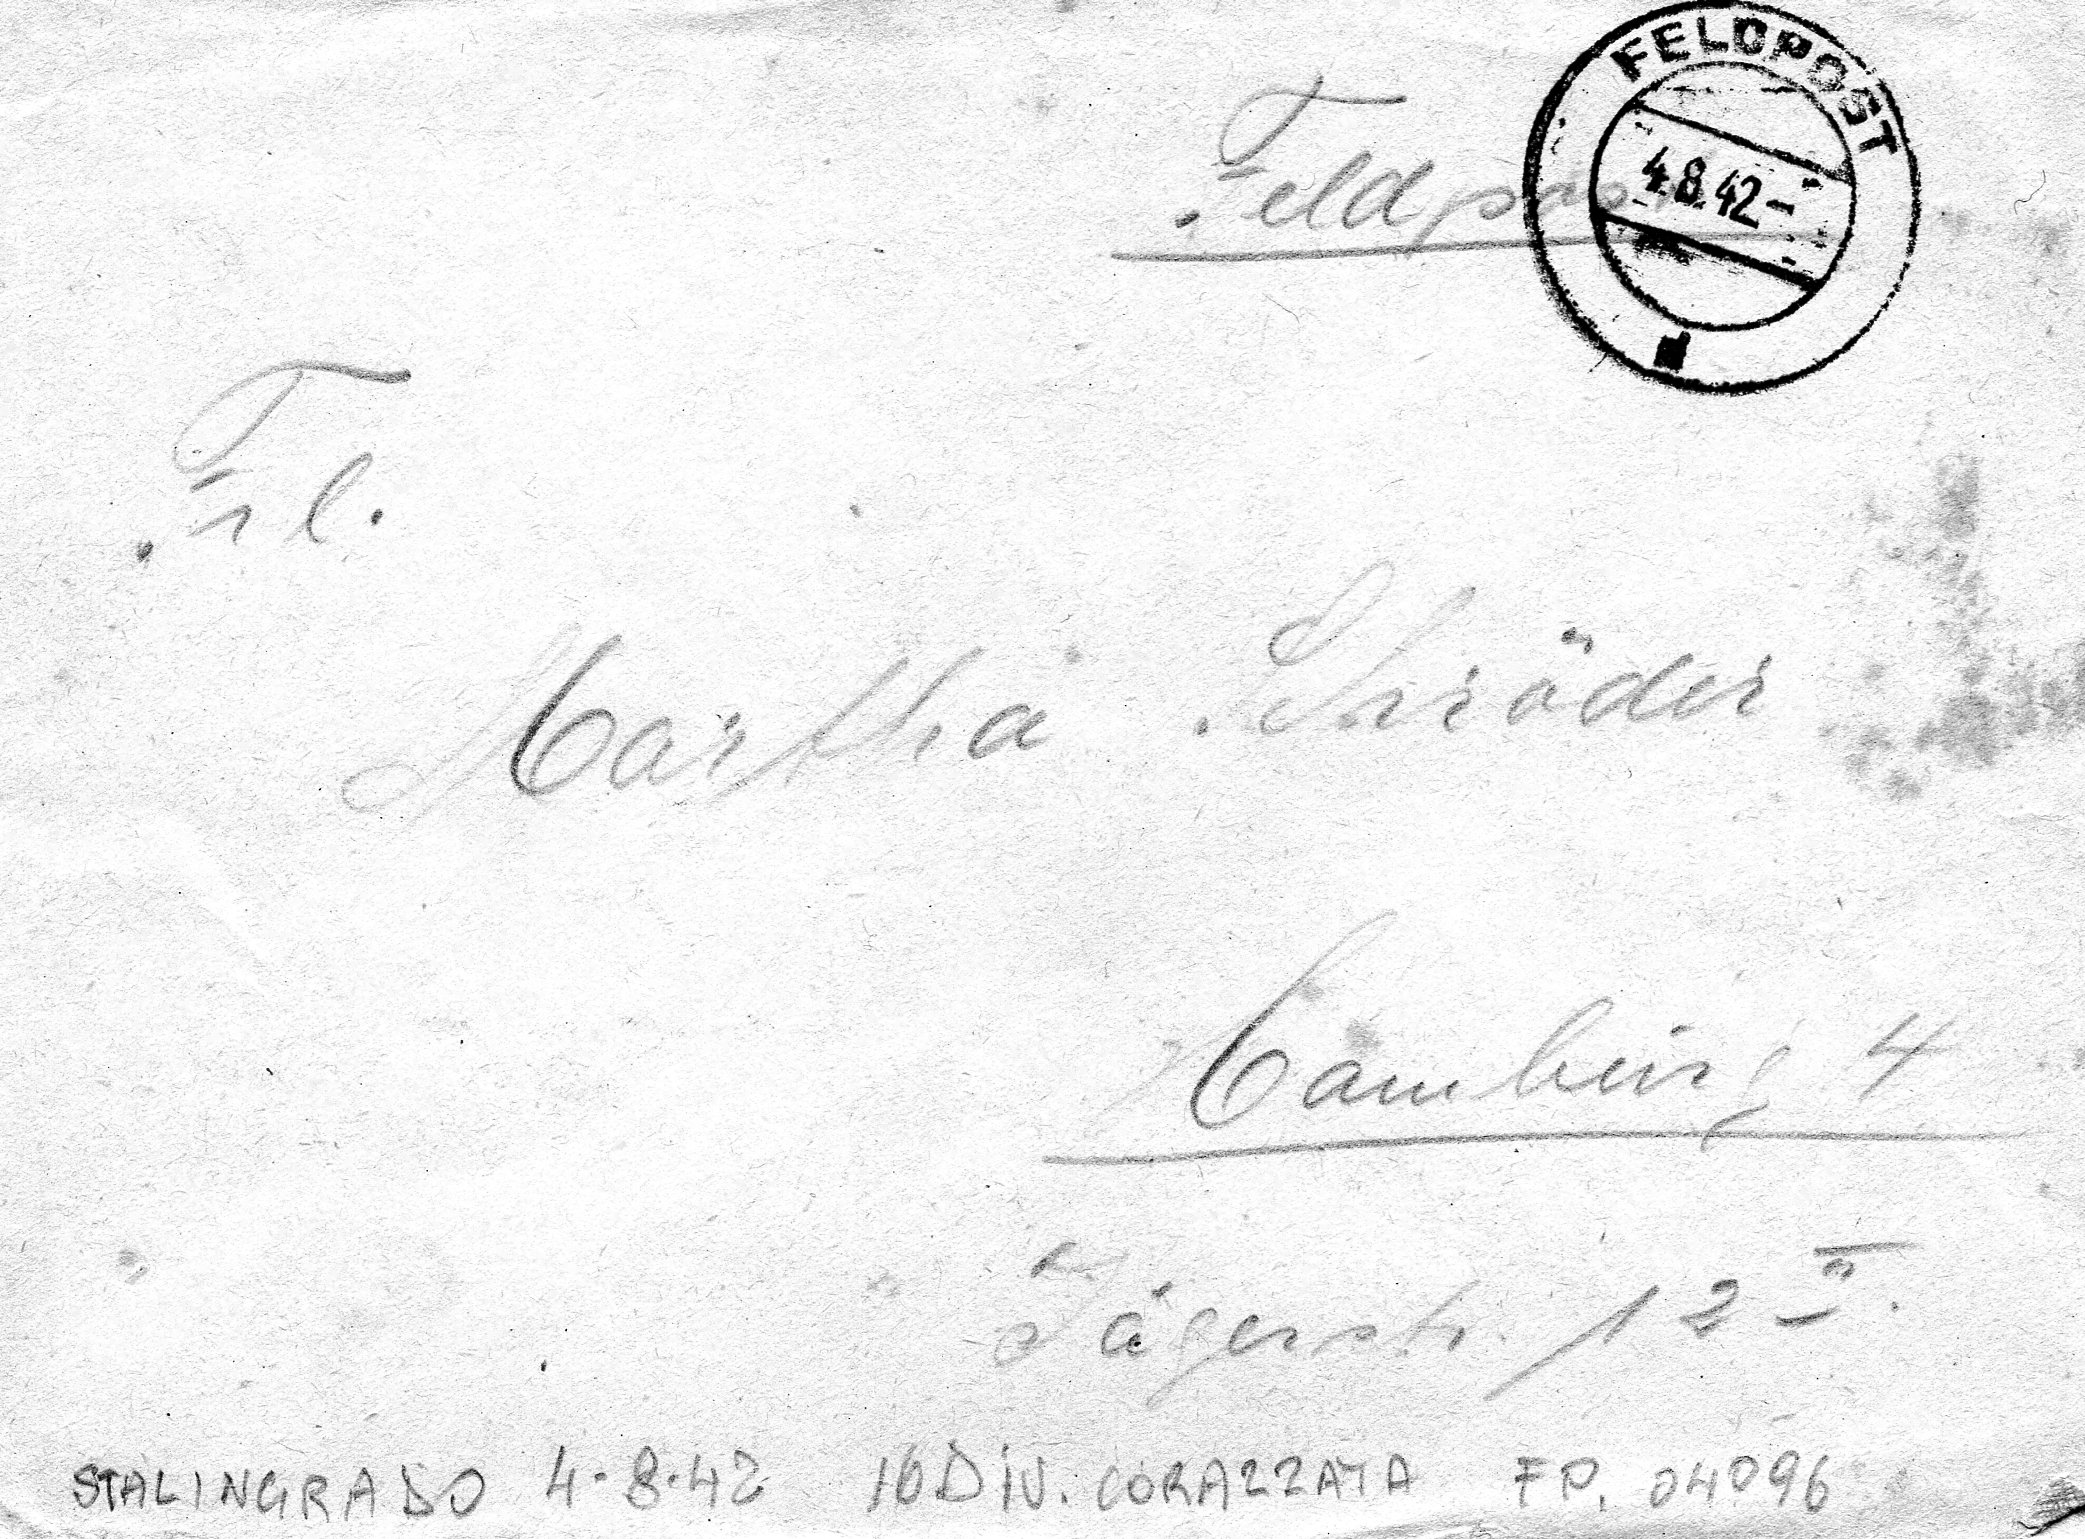 Feldpost
FELDPOST
4.8.42-
Frl.
Martha Schröder
Hamburg 4
Jägerstr. 12 II.
STALINGRADO 4.8.42 16 DIV. CORAZZATA FP. 04096